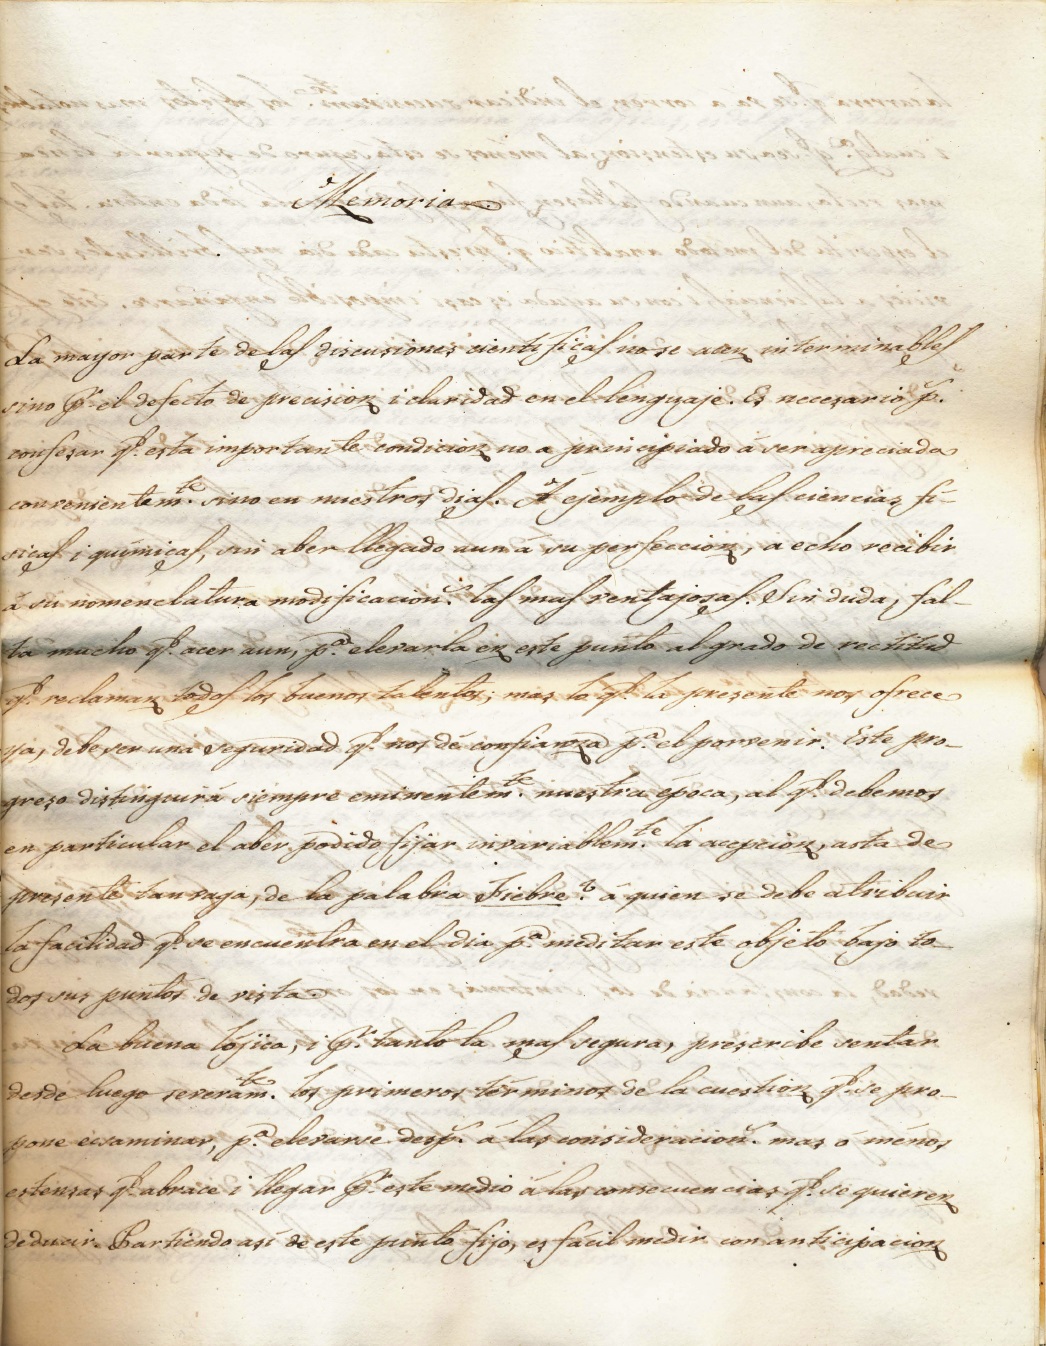 Memoria
La mayor parte de las discusiones cientificas no se acen interminables
sino pr. el defecto de precision i claridad en el lenguaje. Es necesario ps.
confesar q.e esta importante condicion no a principiado á ser apreciada
convenientemte. sino en nuestros dias. A ejemplo de las ciencias fí-
sicas i químicas, sin aber llegado aun á su perfeccion, a echo recibir
á su nomenclatura modificacions. las mas ventajosas. Sin duda, fal-
ta mucho q.e acer aun, pa. elevarla en este punto al grado de rectitud
q.e reclaman todos los buenos talentos; mas lo q.e la presente nos ofrece
ya, debe ser una seguridad q.e nos dé confianza pa. el porvenir. Este pro-
greso distinguirá siempre eminentemte. nuestra época, al q.e debemos
en particular el aber podido fijar invariablemte. la acepcion, asta de
presente tan vaga, de la palabra Fiebre. á quien se debe atribuir
la facilidad q.e se encuentra en el dia pa. meditar este objeto bajo to-
dos sus puntos de vista.
La buena lójica, i pr. tanto la mas segura, prescribe sentar
desde luego severamte. los primeros términos de la cuestion q.e se pro-
pone ecsaminar, pa. elevarse desps. á las consideracions. mas ó ménos
estensas q.e abrace i llegar pr. este medio á las consecuencias q.e se quieren
deducir. Partiendo así de este punto fijo, es fácil medir con anticipacion